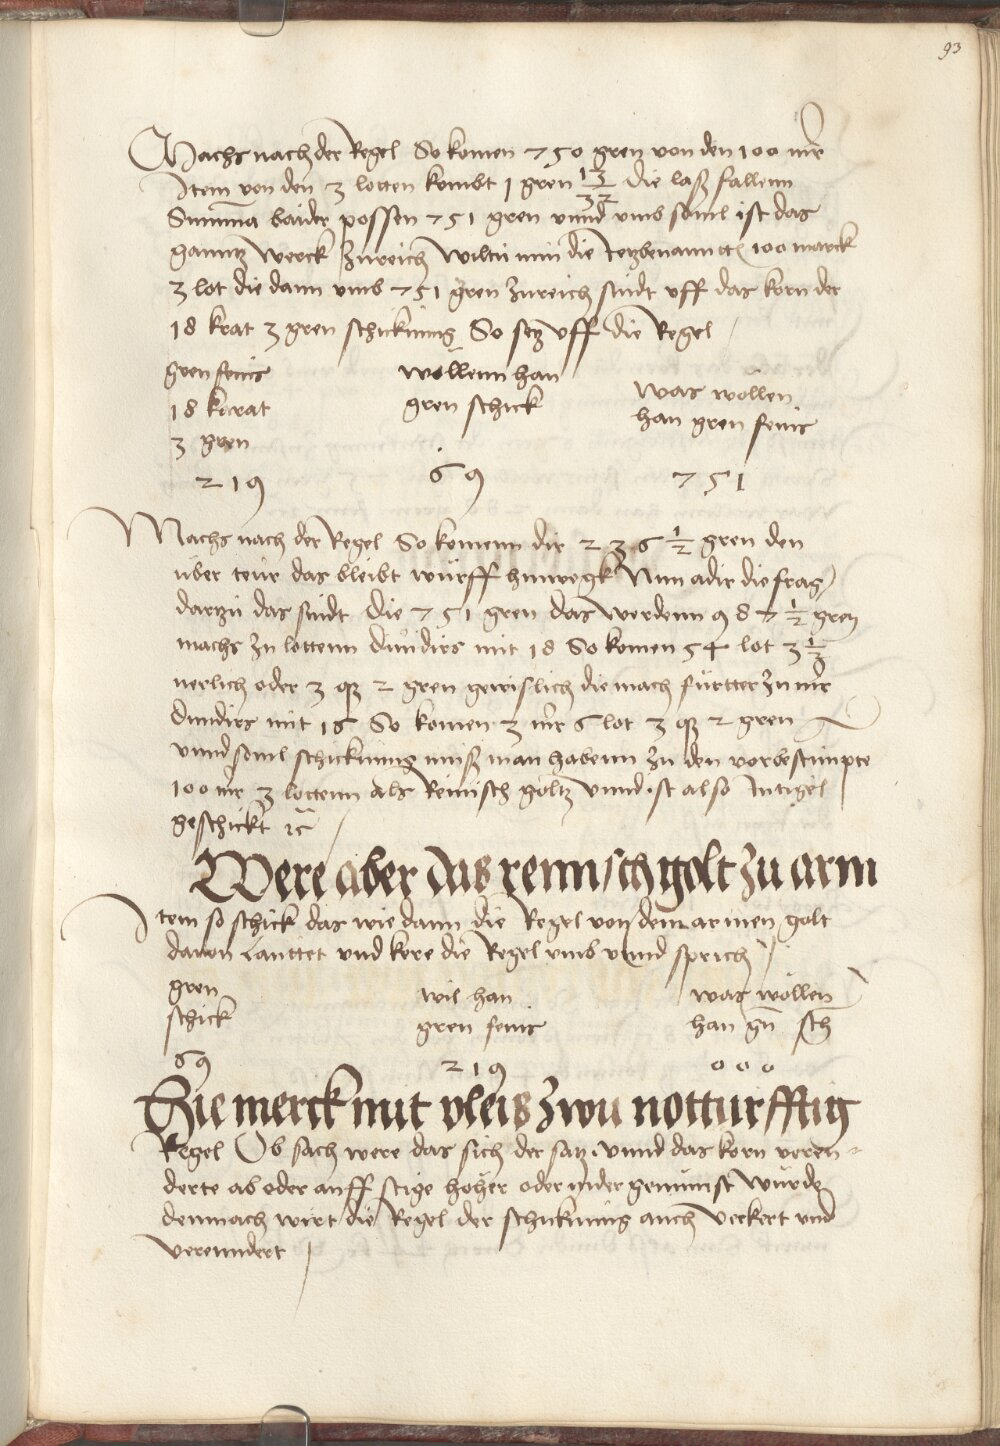 93
Machs nach der Regel So komen 750 gren von den 100 mr
Item von den 3 lotten kombt 1 gren 13/32 die laß fallenn
Summa baider possen 751 gren vnnd vmb souil ist das
ganntz Werck zureich Wiltu nun die Jetzbenanntten 100 marck
3 lot die dann vmb 751 gren zureich sindt vff das korn der
18 krat 3 gren schickung So setz vff die Regel
gren feins wöllenn han was wöllen
18 karat gren schick han gren feins
3 gren
219 69 751
Machs nach der Regel So komenn dir 236 1/2 gren den
über teür das bleibt würff hinwegk Nun adir die frag
dartzu das sindt die 751 gren das werdenn 987 1/2 gren
machs zu lottenn diuidirs mit 18 So komen 54 lot 3 1/3
nerlich oder 3 q 2 gren gewislich die mach fürtter zu mr
diuidirs mit 16 So komen 3 mr 6 lot 3 q 2 gren
vnnd souil schickung muß man habenn zu den vorbestimpte
100 mr 3 lottenn als Reinisch goltz vnnd ist also Intigel
geschickt ec
Were aber das reinnsch golt zu arm
Item so schick das wie dann die Regel von dem armen golt
dauon Lauttet vnd kere die Regel vmb vnnd sprich
gren wil han was wöllen
schick gren feins han gn sch
69 219 000
Hie merck mit vleis zwu notturfftig
Regel Ob sach were das sich der satz vnnd das korn veren-
derte ab oder auff stige höher oder nider gemünst würde
demnach wirt die Regel der schickung auch verkert vnd
verenndert